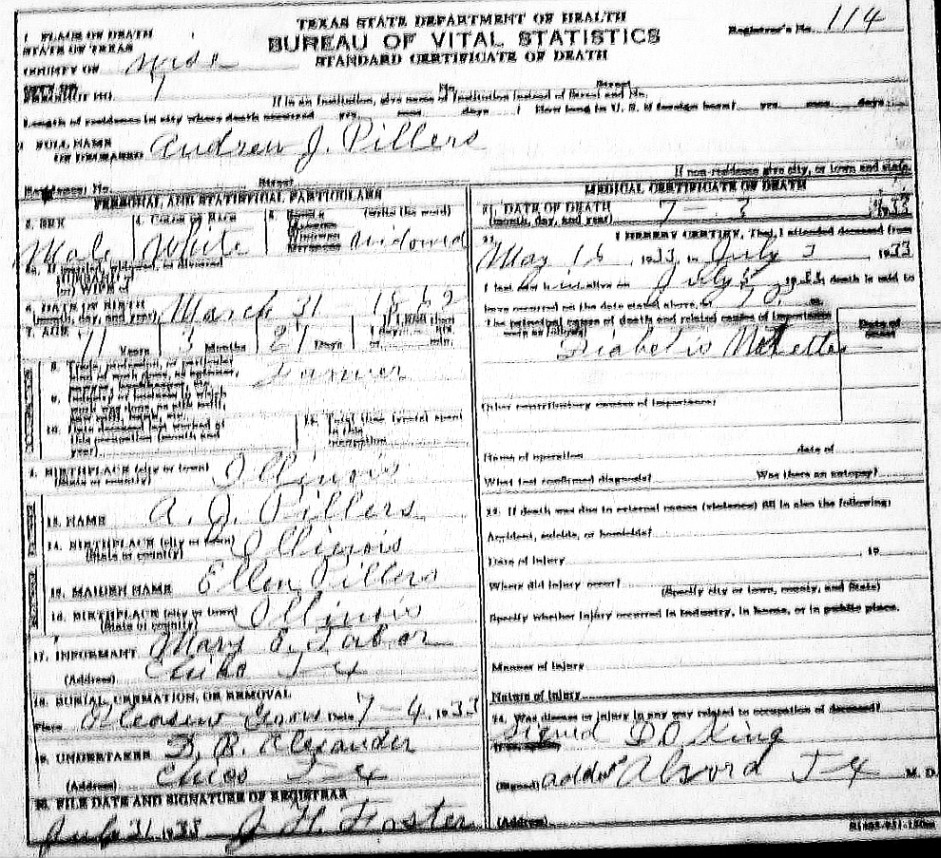 TEXAS STATE DEPARTMENT OF HEALTH
BUREAU OF VITAL STATISTICS
STANDARD CERTIFICATE OF DEATH
Registrar's No. 114
1 PLACE OF DEATH
STATE OF TEXAS
COUNTY OF Wise
PRECINCT NO. 1
No. Street
If in an Institution, give name of Institution instead of Street and No.
Length of residence in city where death occurred yrs. mos. days How long in U. S. if foreign born? yrs. mos. days
2 FULL NAME
OF DECEASED Andrew J. Pillers
Residence: No. Street
If non-residence give city, or town and state.
PERSONAL AND STATISTICAL PARTICULARS
3. SEX 4. COLOR OR RACE 5. (write the word)
Male White Widowed
5a. If married, widowed, or divorced
HUSBAND of
(or) WIFE of
6. DATE OF BIRTH
(month, day, and year) March 31
7. AGE 71 Years 3 Months Days
8. Trade, profession, or particular Farmer
10. Date deceased last worked at
this occupation (month and
year)
11. Total time (years) spent
in this
occupation
BIRTHPLACE (city or town)
(State or country) Illinois
13. NAME A. J. Pillers
14. BIRTHPLACE (city or town)
(State or country) Illinois
15. MAIDEN NAME Ellen Pillers
16. BIRTHPLACE (city or town)
(State or country) Illinois
17. INFORMANT Mary E. Tabor
(Address) Chico Tex
18. BURIAL, CREMATION, OR REMOVAL
Place Date 7-4, 1933
19. UNDERTAKER D. R. Alexander
(Address) Chico Tex
20. FILE DATE AND SIGNATURE OF REGISTRAR
July 31, 1933 J H Foster
MEDICAL CERTIFICATE OF DEATH
21. DATE OF DEATH
(month, day, and year) 7- 1933
22. I HEREBY CERTIFY, That I attended deceased from
May 1933, to July 3, 1933
I last saw h alive on July death is said to
have occurred on the date stated above, at m.
The principal cause of death and related causes of importance
were as follows:
Date of
onset
Other contributory causes of importance:
Name of operation date of
What test confirmed diagnosis? Was there an autopsy?
23. If death was due to external causes (violence) fill in also the following:
Accident, suicide, or homicide?
Date of injury , 19
Where did injury occur?
(Specify city or town, county, and State)
Specify whether injury occurred in industry, in home, or in public place.
Manner of Injury
Nature of Injury
24. Was disease or injury in any way related to occupation of deceased?
Signed D O King
(Signed) Alvord Tex M. D.
(Address)